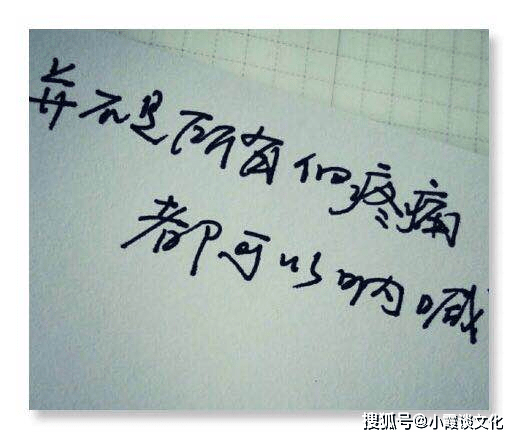 并不是所有的疼痛
都可以呐喊
搜狐号@小霞谈文化